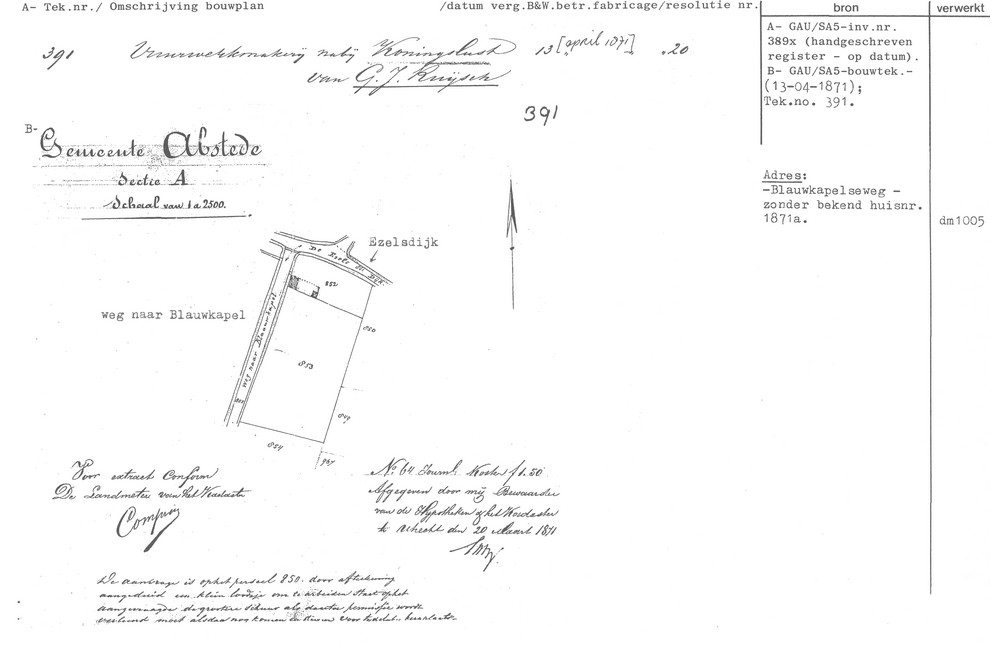 A- Tek.nr./ Omschrijving bouwplan /datum verg.B&W.betr.fabricage/resolutie nr.
bron
verwerkt
391 Vuurwerkmakerij nabij Koningslust 13 [april 1871] "20
van G. J. Ruijsch
391
A- GAU/SA5-inv.nr.
389x (handgeschreven
register - op datum).
B- GAU/SA5-bouwtek.-
(13-04-1871);
Tek.no. 391.
Adres:
-Blauwkapelseweg -
zonder bekend huisnr.
1871a.
dm1005
B-
Gemeente Abstede
Sectie A
Schaal van 1 a 2500.
Ezelsdijk
weg naar Blauwkapel
weg naar Blaauwkapel
852
850
853
849
854
947
Voor extract Conform
De Landmeter van het Kadaster
No. 64 Journl. Kosten f 1.50
Afgegeven door mij Bewaarder
van de Hypotheken & het Kadaster
te Utrecht den 20 Maart 1871
De aanvrage is op het perseel 850. door afteekening
aangeduid een klein loodsje om te arbeiden staat op het
aangevraagde de grootere schuur als daartoe permissie wordt
verleend moet alsdan nog komen